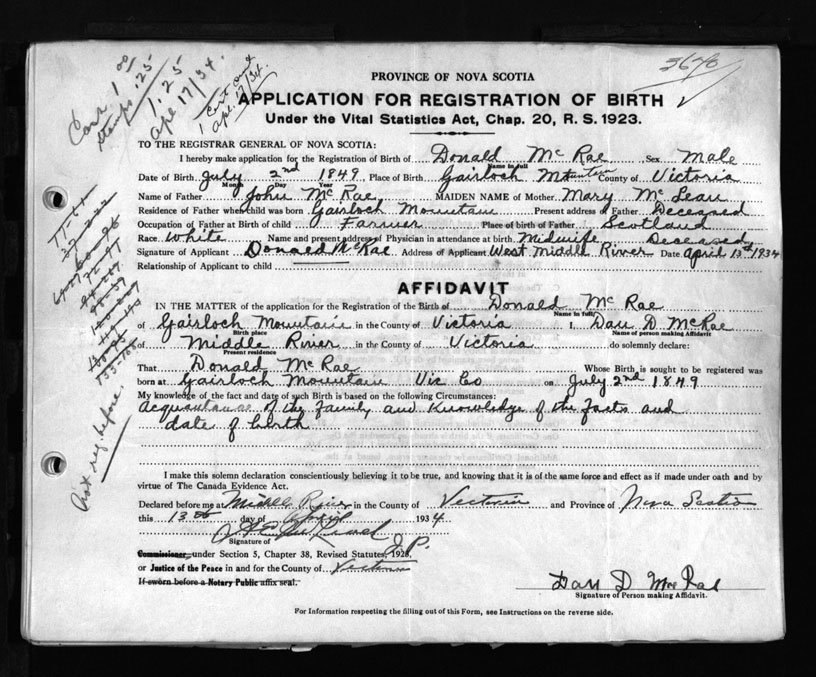 Cert 1.00
Stamps .25
1.25
Apl 17/34.
1 Cert and
apl. 17/34.
3640
PROVINCE OF NOVA SCOTIA
APPLICATION FOR REGISTRATION OF BIRTH
Under the Vital Statistics Act, Chap. 20, R. S. 1923.
TO THE REGISTRAR GENERAL OF NOVA SCOTIA:
I hereby make application for the Registration of Birth of Donald McRae Sex Male
Name in full
Date of Birth July 2nd 1849 Place of Birth Gairloch Mountain County of Victoria
Month Day Year
Name of Father John McRae MAIDEN NAME of Mother Mary McLean
Residence of Father when child was born Gairloch Mountain Present address of Father Deceased
Occupation of Father at Birth of child Farmer Place of birth of Father Scotland
Race White Name and present address of Physician in attendance at birth Midwife Deceased
Signature of Applicant Donald McRae Address of Applicant West Middle River Date April 13th 1934
Relationship of Applicant to child
AFFIDAVIT
IN THE MATTER of the application for the Registration of the Birth of Donald McRae
Name in full
of Gairloch Mountain in the County of Victoria I, Dan D. McRae
Birth place Name of person making Affidavit
of Middle River in the County of Victoria do solemnly declare:
Present residence
That Donald McRae Whose Birth is sought to be registered was
born at Gairloch Mountain Vic Co on July 2nd 1849
My knowledge of the fact and date of such Birth is based on the following Circumstances:
Acquaintance of the Family and Knowledge of the facts and
date of birth
Not reg. before.
I make this solemn declaration conscientiously believing it to be true, and knowing that it is of the same force and effect as if made under oath and by
virtue of The Canada Evidence Act.
Declared before me at Middle River in the County of Victoria and Province of Nova Scotia
this 13th day of April 1934
Signature of
Commissioner, under Section 5, Chapter 38, Revised Statutes, 1923, J.P.
or Justice of the Peace in and for the County of Victoria
If sworn before a Notary Public affix seal.
Dan D McRae
Signature of Person making Affidavit.
For Information respecting the filling out of this Form, see Instructions on the reverse side.